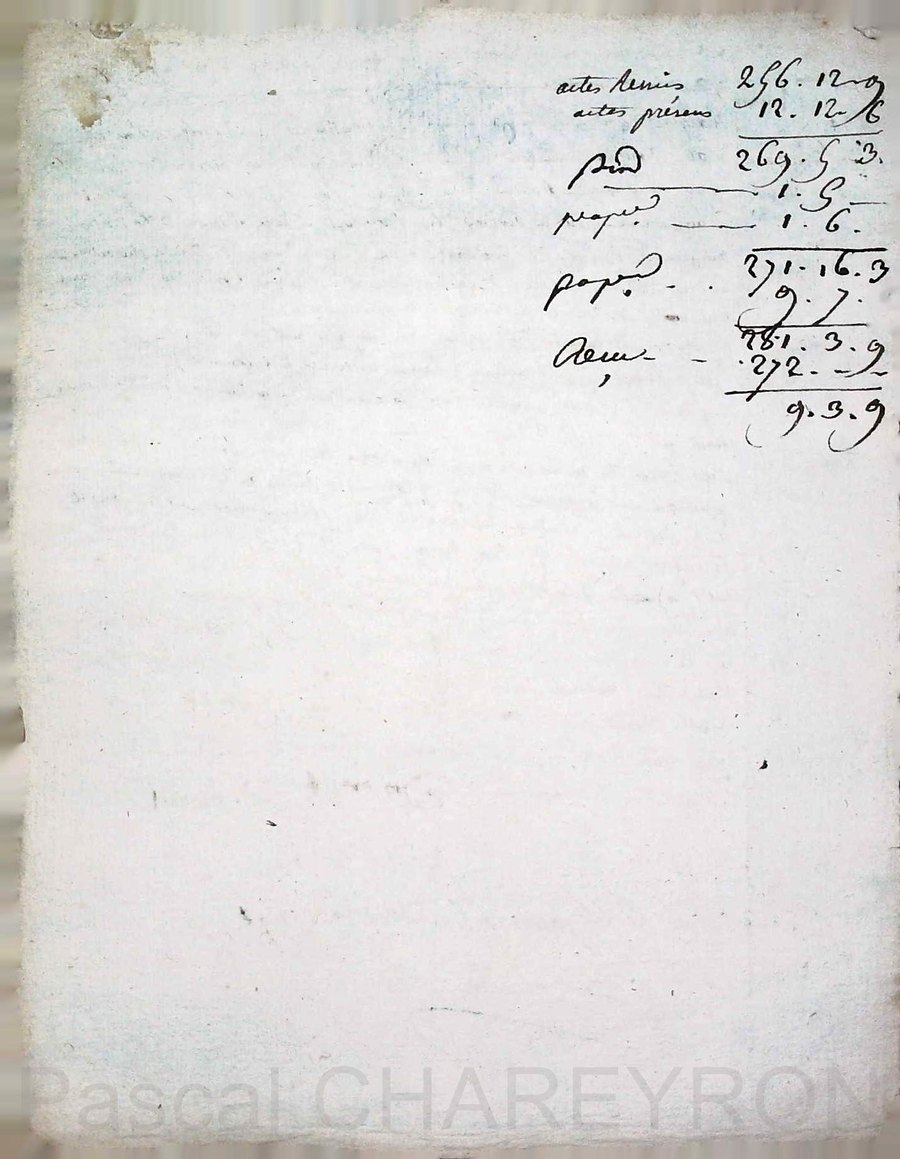 actes Remis 256. 12. 9
actes présens 12. 12. 6
269. 5 3.
pied 1. 5 —
papier 1. 6.
271. 16. 3
papier. - . 9. 7.
281. 3. 9
Reçu - - 272. - -
9. 3. 9
Pascal CHAREYRON